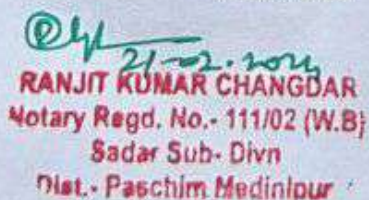 21-02-2024
RANJIT KUMAR CHANGDAR
Notary Regd. No.- 111/02 (W.B)
Sadar Sub- Divn
Dist.- Paschim Medinipur